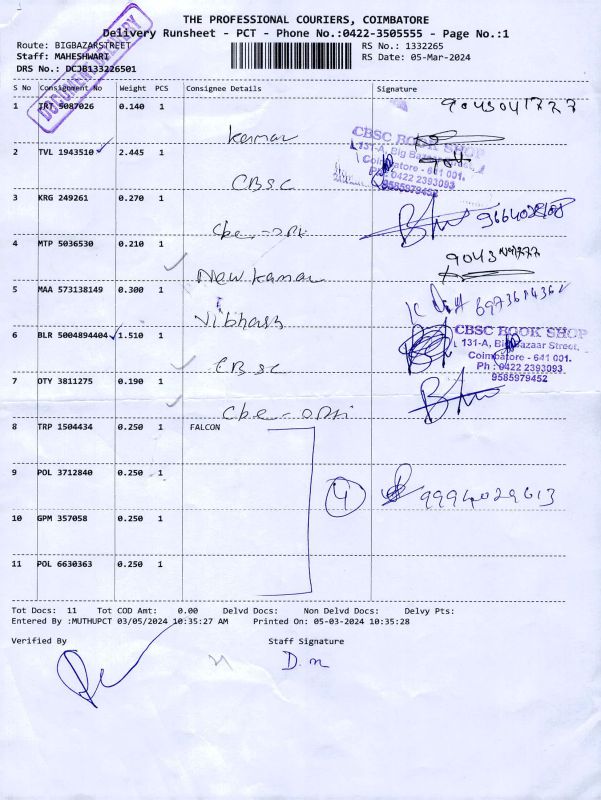 THE PROFESSIONAL COURIERS, COIMBATORE
Delivery Runsheet - PCT - Phone No.:0422-3505555 - Page No.:1
Route: BIGBAZARSTREET RS No.: 1332265
Staff: MAHESHWARI RS Date: 05-Mar-2024
DRS No.: DCJB133226501
DOCUMENT DELIVERY
S No Consignment No Weight PCS Consignee Details Signature
1 TRT 5087026 0.140 1
Kannan
CBSC BOOK SHOP
131-A, Big Bazaar Street,
Coimbatore - 641 001.
Ph : 0422 2393093
9585979452
2 TVL 1943510 2.445 1
CBSC
3 KRG 249261 0.270 1
4 MTP 5036530 0.210 1
New Kannan
5 MAA 573138149 0.300 1
6 BLR 5004894404 1.510 1
CBSC
CBSC BOOK SHOP
131-A, Big Bazaar Street,
Coimbatore - 641 001.
Ph : 0422 2393093
9585979452
7 OTY 3811275 0.190 1
8 TRP 1504434 0.250 1 FALCON
9 POL 3712840 0.250 1
4 9994029613
10 GPM 357058 0.250 1
11 POL 6630363 0.250 1
Tot Docs: 11 Tot COD Amt: 0.00 Delvd Docs: Non Delvd Docs: Delvy Pts:
Entered By :MUTHUPCT 03/05/2024 10:35:27 AM Printed On: 05-03-2024 10:35:28
Verified By Staff Signature
D.m